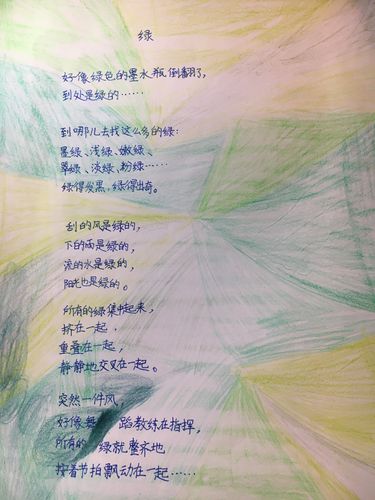 绿
好像绿色的墨水瓶倒翻了，
到处是绿的……
到哪儿去找这么多的绿：
墨绿、浅绿、嫩绿、
翠绿、淡绿、粉绿……
绿得发黑、绿得出奇。
刮的风是绿的，
下的雨是绿的，
流的水是绿的，
阳光也是绿的。
所有的绿集中起来，
挤在一起，
重叠在一起，
静静地交叉在一起。
突然一件风，
好像舞 蹈教练在指挥，
所有的 绿就整齐地
按着节拍飘动在一起……